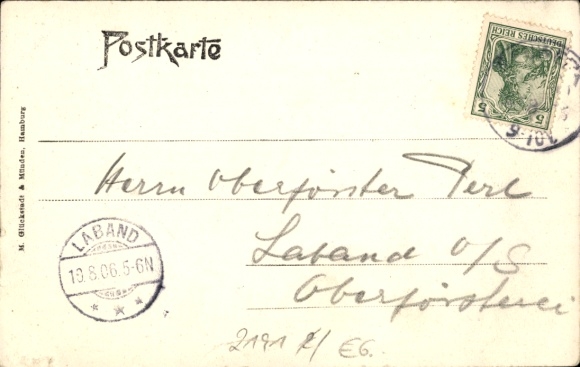 Postkarte
DEUTSCHES REICH
5 5
9-10V.
M. Glückstadt & Münden, Hamburg
Herrn Oberförster Perl
Laband O/S
Oberförsterei
LABAND
19.8.06.5-6N
* * *